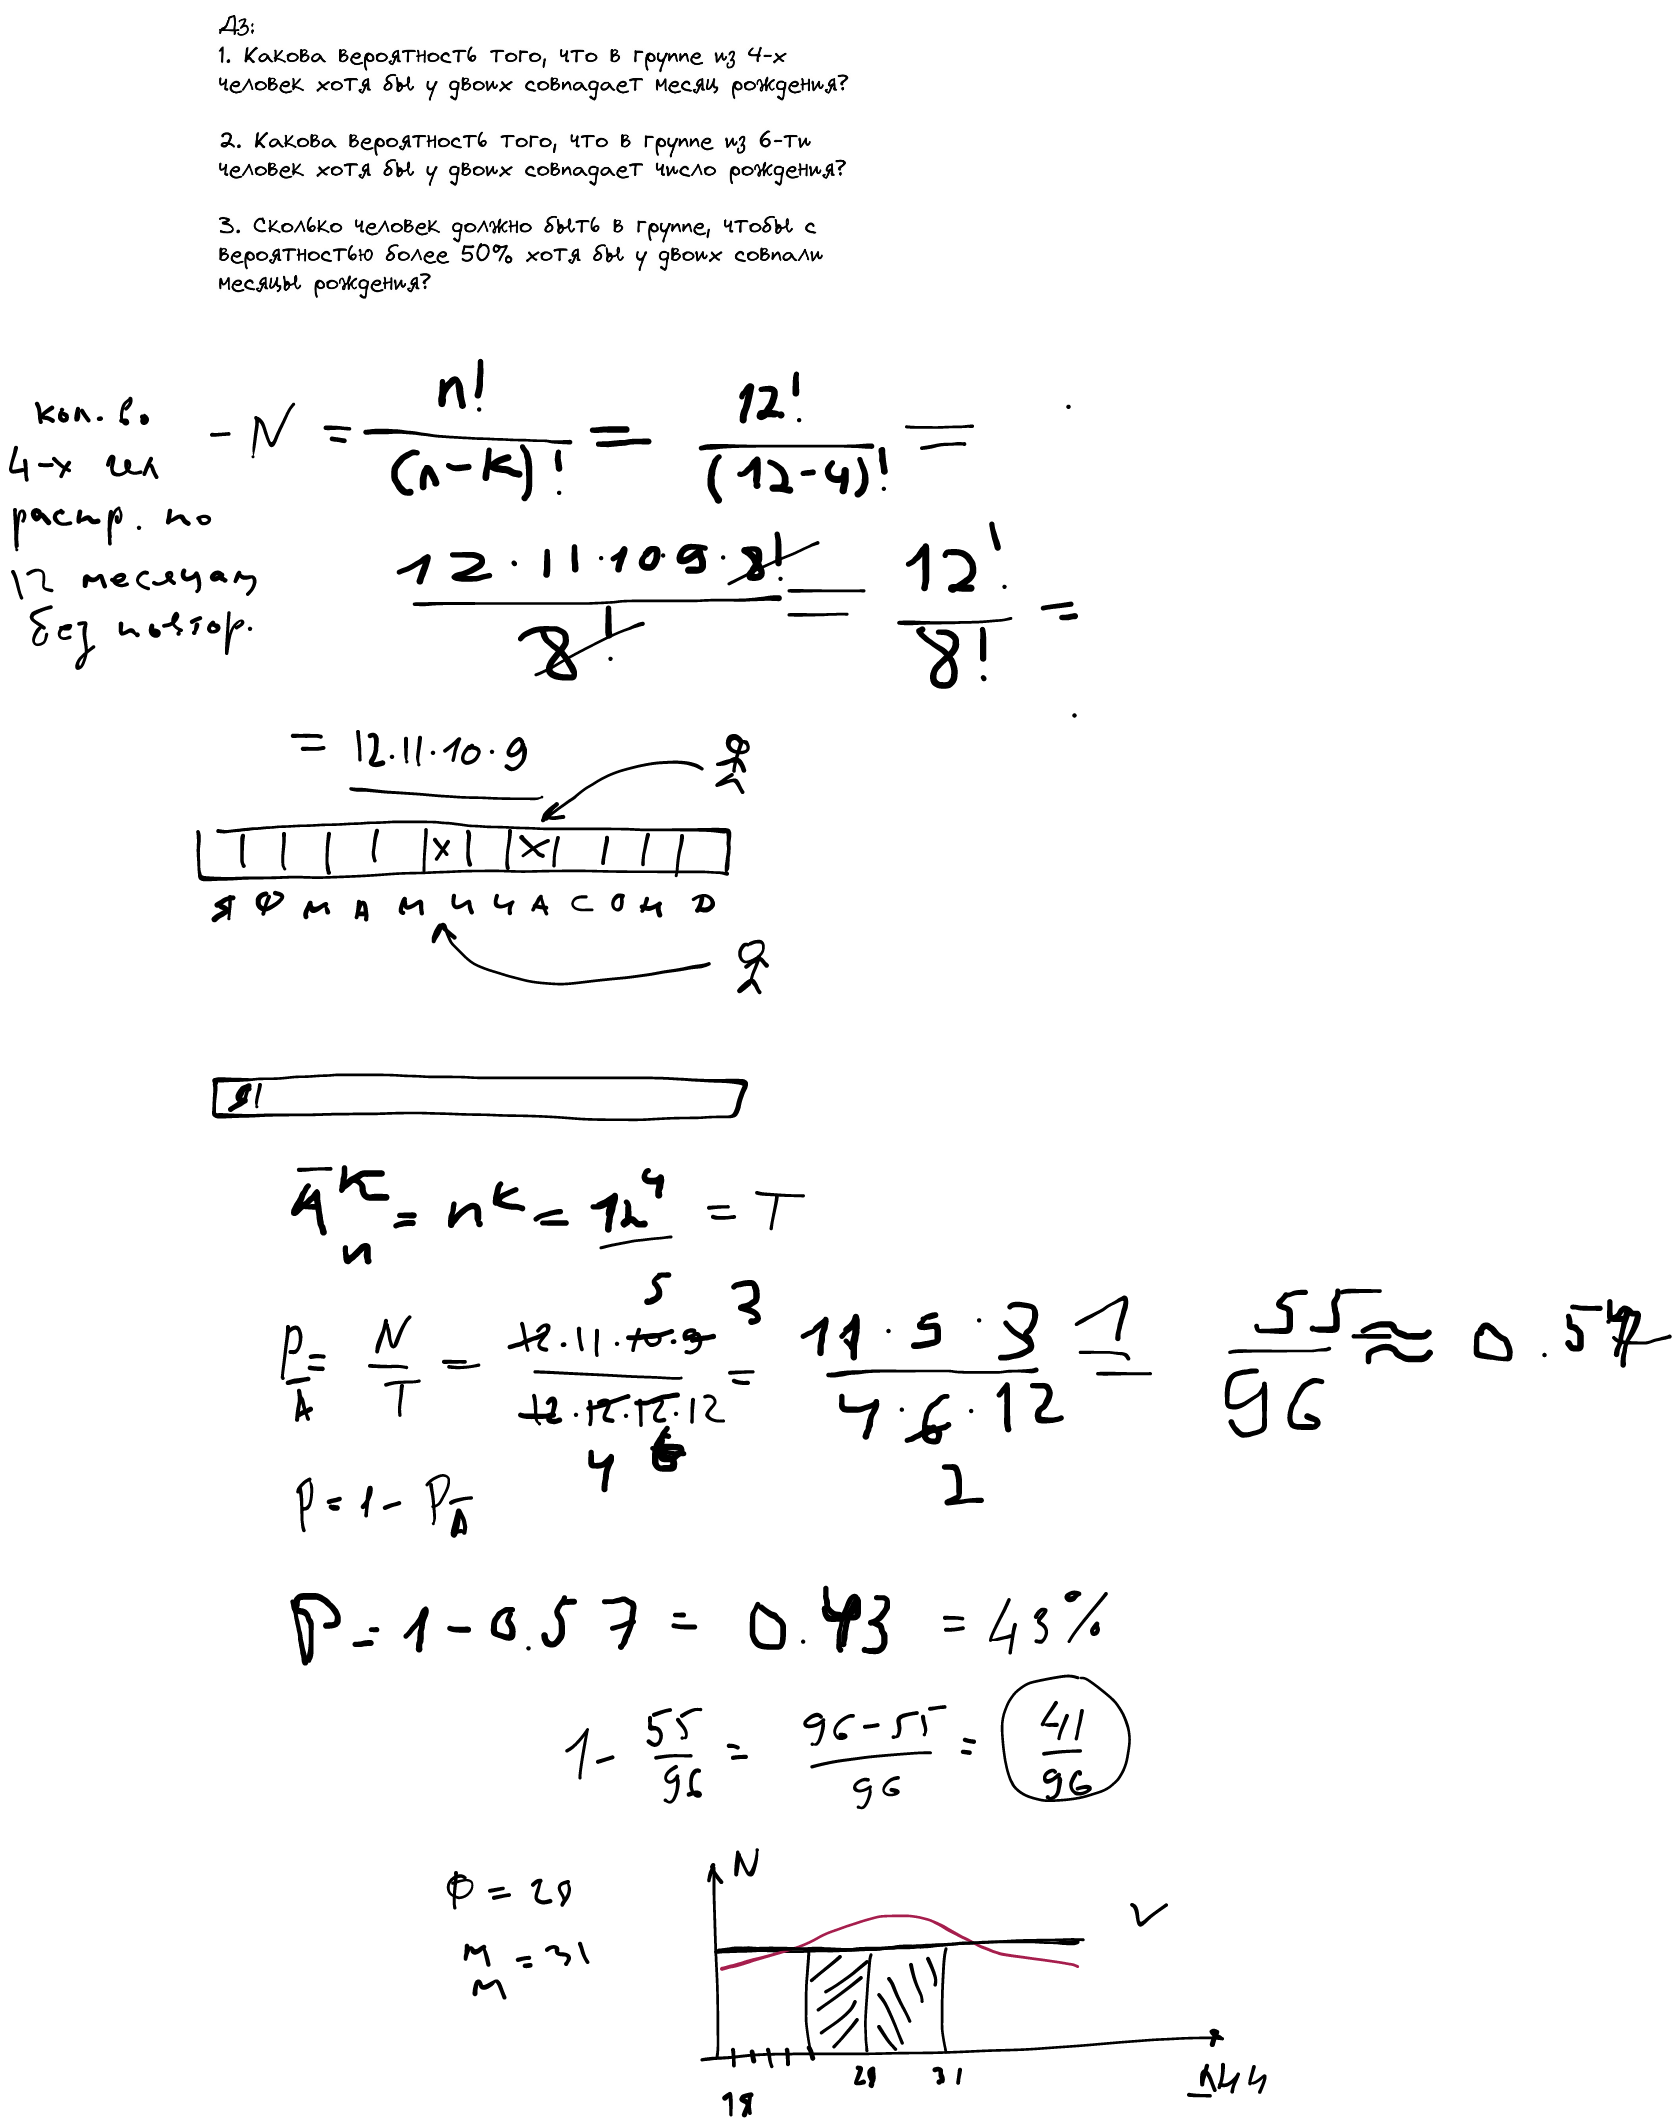 ДЗ:
1. Какова вероятность того, что в группе из 4-х
человек хотя бы у двоих совпадает месяц рождения?
2. Какова вероятность того, что в группе из 6-ти
человек хотя бы у двоих совпадает число рождения?
3. Сколько человек должно быть в группе, чтобы с
вероятностью более 50% хотя бы у двоих совпали
месяцы рождения?
кол. во
4-х чел
распр. по
12 месяцам
без повтор.
- N = n! / (n-k)! = 12! / (12-4)! =
12·11·10·9·8! / 8! = 12! / 8! =
= 12·11·10·9
x x
Я Ф М А М И И А С О Н Д
Я
A̅ᵏₙ = nᵏ = 12⁴ = T
5 3
P_A̅ = N / T = 12·11·10·9 / 12·12·12·12 = 11·5·3 / 4·6·12 = 55 / 96 ≈ 0.57
4 6
2
P = 1 - P_A̅
P = 1 - 0.57 = 0.43 = 43%
1 - 55/96 = 96-55 / 96 = 41/96
Ф = 28
М = 31
М
N
1Я
28
31